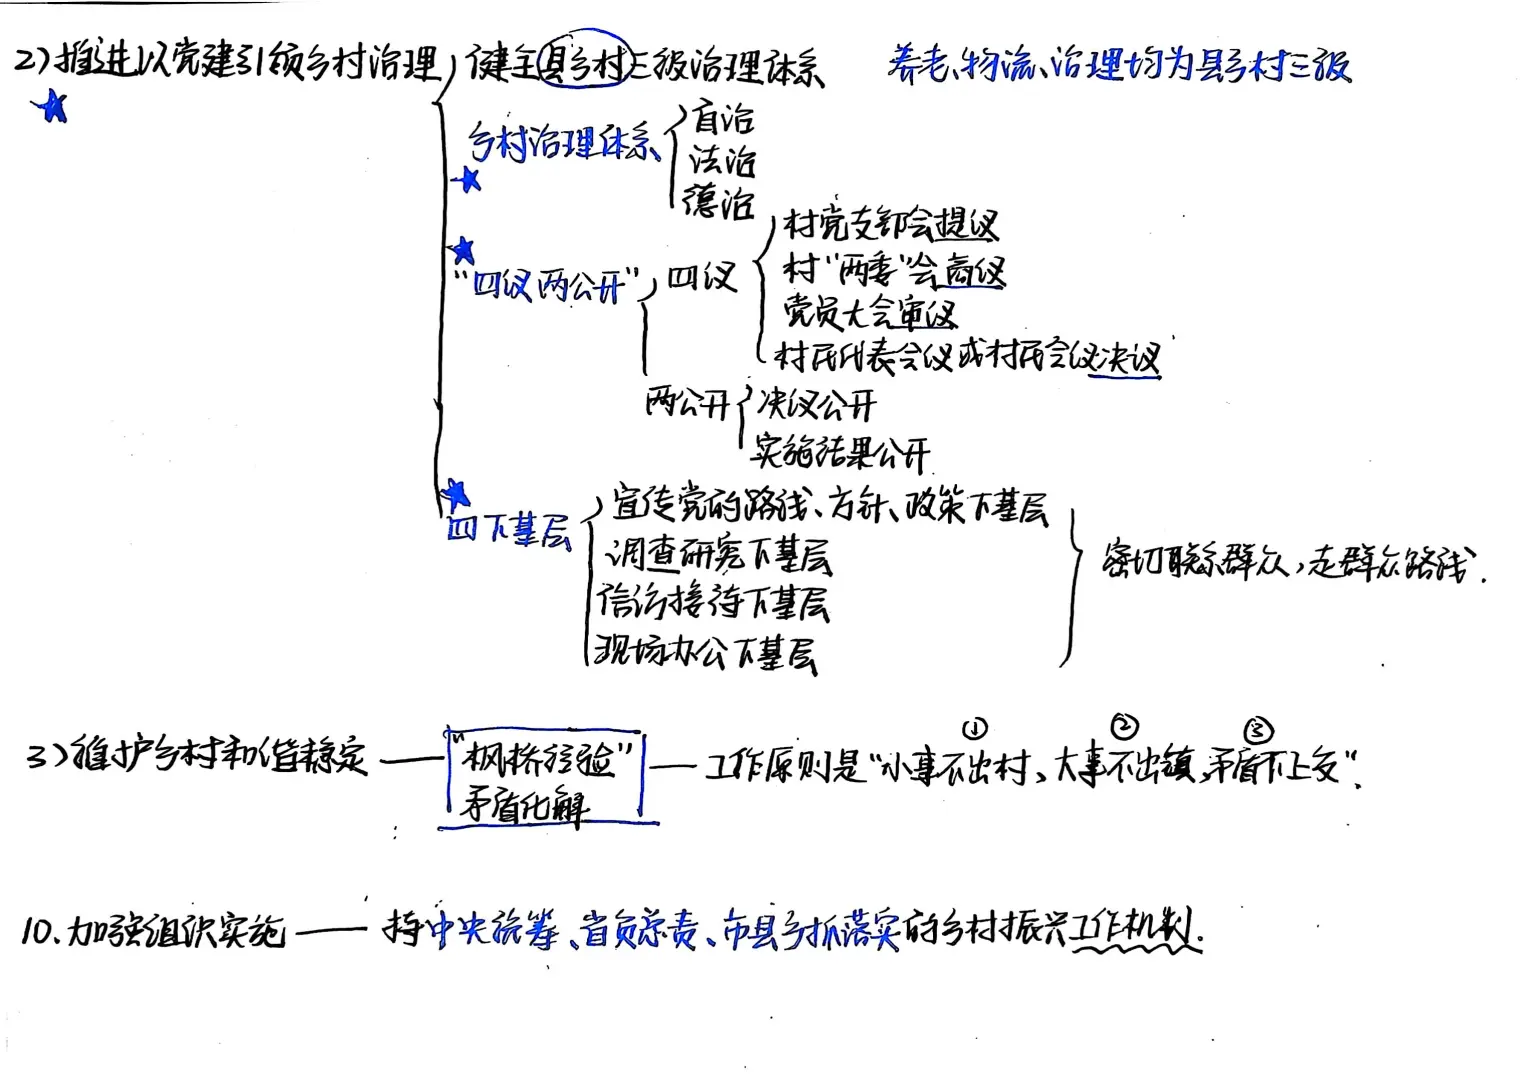 2)推进以党建引领乡村治理
健全县乡村三级治理体系
养老、物流、治理均为县乡村三级
乡村治理体系
自治
法治
德治
"四议两公开"
四议
村党支部会提议
村"两委"会商议
党员大会审议
村民代表会议或村民会议决议
两公开
决议公开
实施结果公开
四下基层
宣传党的路线、方针、政策下基层
调查研究下基层
信访接待下基层
现场办公下基层
密切联系群众,走群众路线.
3)维护乡村和谐稳定
"枫桥经验"
矛盾化解
① ② ③
工作原则是"小事不出村、大事不出镇,矛盾不上交".
10.加强组织实施
持中央统筹、省负总责、市县乡抓落实的乡村振兴工作机制.